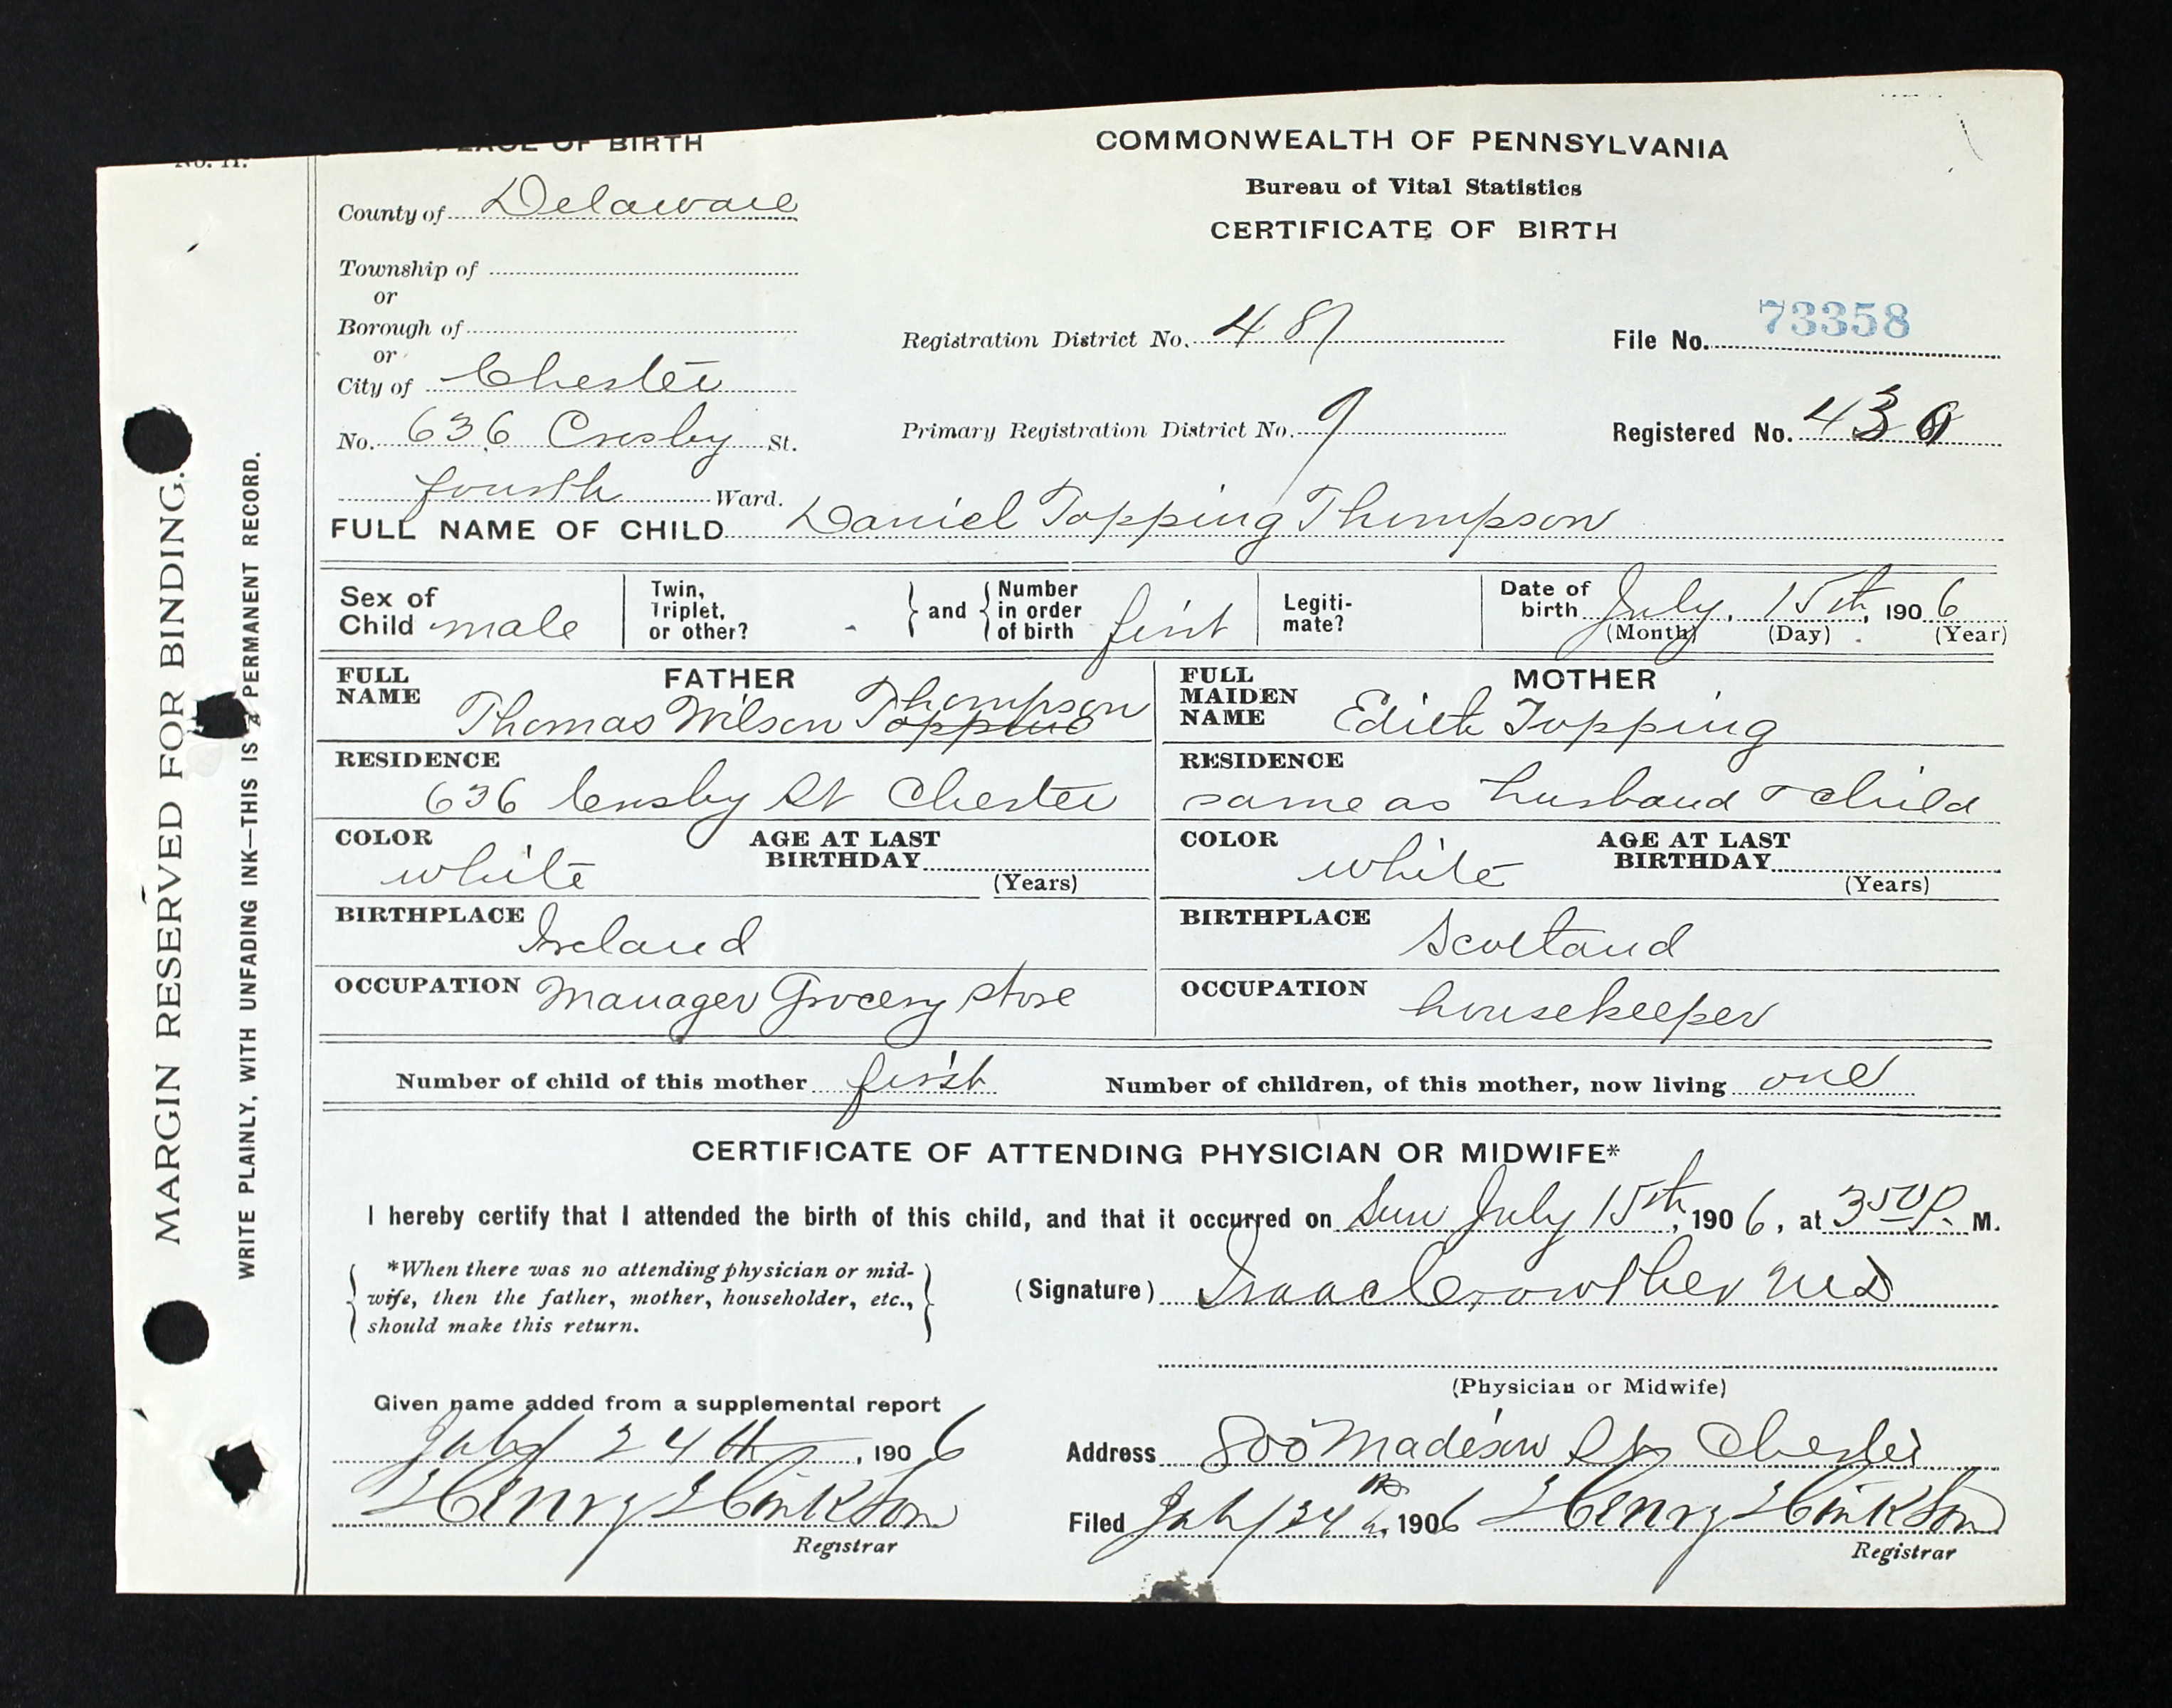 MARGIN RESERVED FOR BINDING.
WRITE PLAINLY, WITH UNFADING INK—THIS IS A PERMANENT RECORD.
PLACE OF BIRTH
County of Delaware
Township of
or
Borough of
or
City of Chester
No. 636 Crosby St.
fourth Ward.
COMMONWEALTH OF PENNSYLVANIA
Bureau of Vital Statistics
CERTIFICATE OF BIRTH
Registration District No. 487
File No. 73358
Primary Registration District No. 9
Registered No. 43
FULL NAME OF CHILD Daniel Topping Thompson
Sex of Child male
Twin, Triplet, or other? -
and Number in order of birth first
Legitimate?
Date of birth July, 15th, 1906
(Month) (Day) (Year)
FATHER
FULL NAME Thomas Wilson Topping Thompson
RESIDENCE
636 Crosby St Chester
COLOR white
AGE AT LAST BIRTHDAY (Years)
BIRTHPLACE Ireland
OCCUPATION Manager Grocery store
MOTHER
FULL MAIDEN NAME Edith Topping
RESIDENCE
same as husband & child
COLOR white
AGE AT LAST BIRTHDAY (Years)
BIRTHPLACE Scotland
OCCUPATION housekeeper
Number of child of this mother first
Number of children, of this mother, now living one
CERTIFICATE OF ATTENDING PHYSICIAN OR MIDWIFE*
I hereby certify that I attended the birth of this child, and that it occurred on Sun July 15th, 1906, at 350 P. M.
*When there was no attending physician or mid-
wife, then the father, mother, householder, etc.,
should make this return.
(Signature) Isaac Crowther MD
(Physician or Midwife)
Given name added from a supplemental report
July 24th, 1906
Henry Hinkson
Registrar
Address 800 Madison St Chester
Filed July 24th, 1906 Henry Hinkson
Registrar